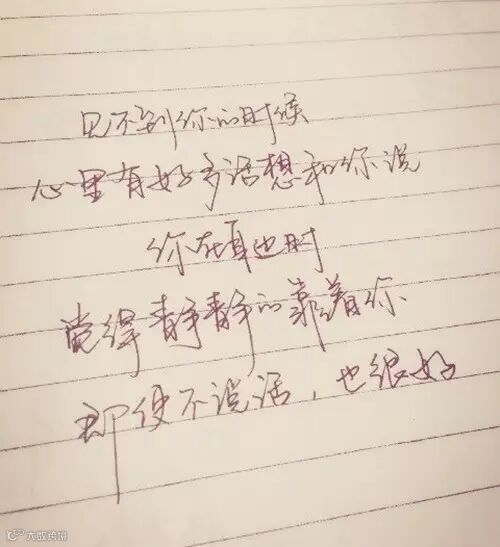 见不到你的时候
心里有好多话想和你说
你在耳边时
觉得静静的靠着你
即使不说话，也很好
大数跨境